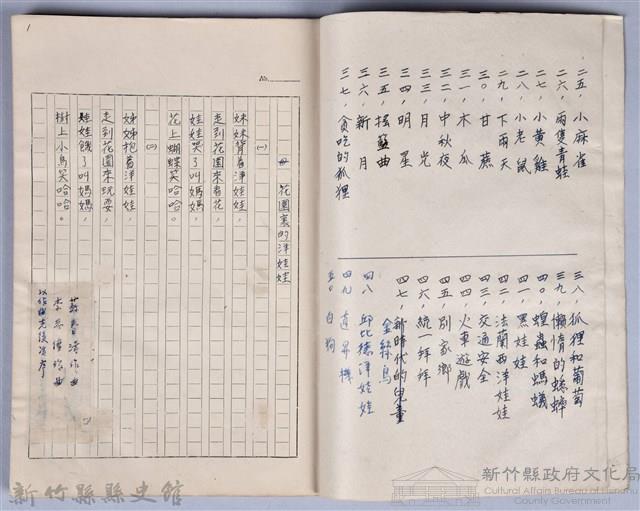 二五、小麻雀
二六、兩隻青蛙
二七、小黃雞
二八、小老鼠
二九、下雨天
三〇、甘蔗
三一、木瓜
三二、中秋夜
三三、月光
三四、明星
三五、搖籃曲
三六、新月
三七、貪吃的狐狸
三八、狐狸和葡萄
三九、懶惰的蟋蟀
四〇、蝗蟲和螞蟻
四一、黑娃娃
四二、法蘭西洋娃娃
四三、交通安全
四四、火車遊戲
四五、別家鄉
四六、統一拜拜
四七、新時代的兒童
金絲鳥
四八、邱比德洋娃娃
四九、直昇機
五〇、白狗
1
No.
花園裏的洋娃娃
(一)
妹妹背着洋娃娃，
走到花園來看花，
娃娃哭了叫媽媽，
花上蝴蝶笑哈哈。
(二)
姊姊抱着洋娃娃，
走到花園來玩耍，
娃娃餓了叫媽媽，
樹上小鳥笑哈哈。
蘇春濤作曲
以作曲先後為序
新竹縣縣史館
新竹縣政府文化局
Cultural Affairs Bureau of Hsinchu
County Government